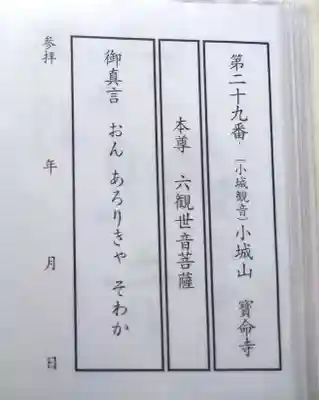 第二十九番 (小城観音)小城山 寳命寺
本尊 六観世音菩薩
御真言 おん あろりきゃ そわか
参拝 年 月 日